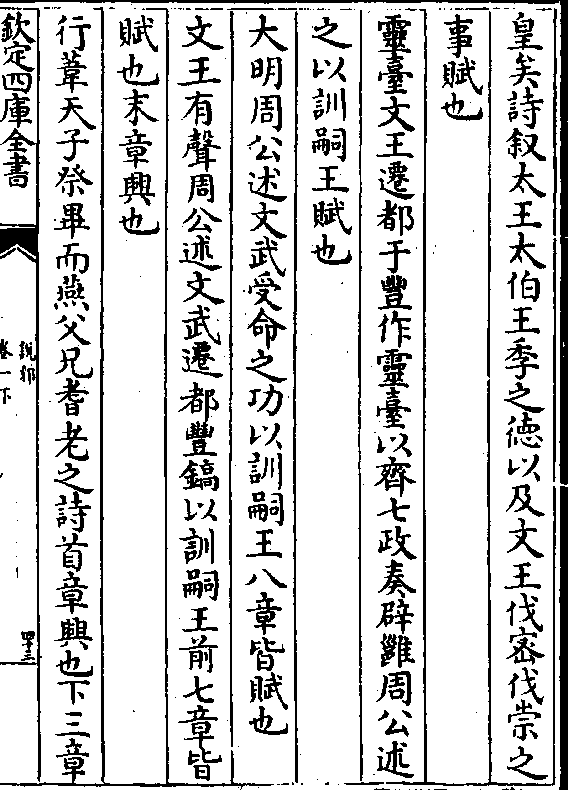 皇矣詩叙太王太伯王季之徳以及文王伐宻伐崇之
事賦也
靈臺文王遷都于豐作靈臺以齊七政奏辟雝周公述
之以訓嗣王賦也
大明周公述文武受命之功以訓嗣王八章皆賦也
文王有聲周公述文武遷都豐鎬以訓嗣王前七章皆
賦也末章興也
行葦天子祭畢而燕父兄耆老之詩首章興也下三章
欽定四庫全書
說郛
卷一下
四十三